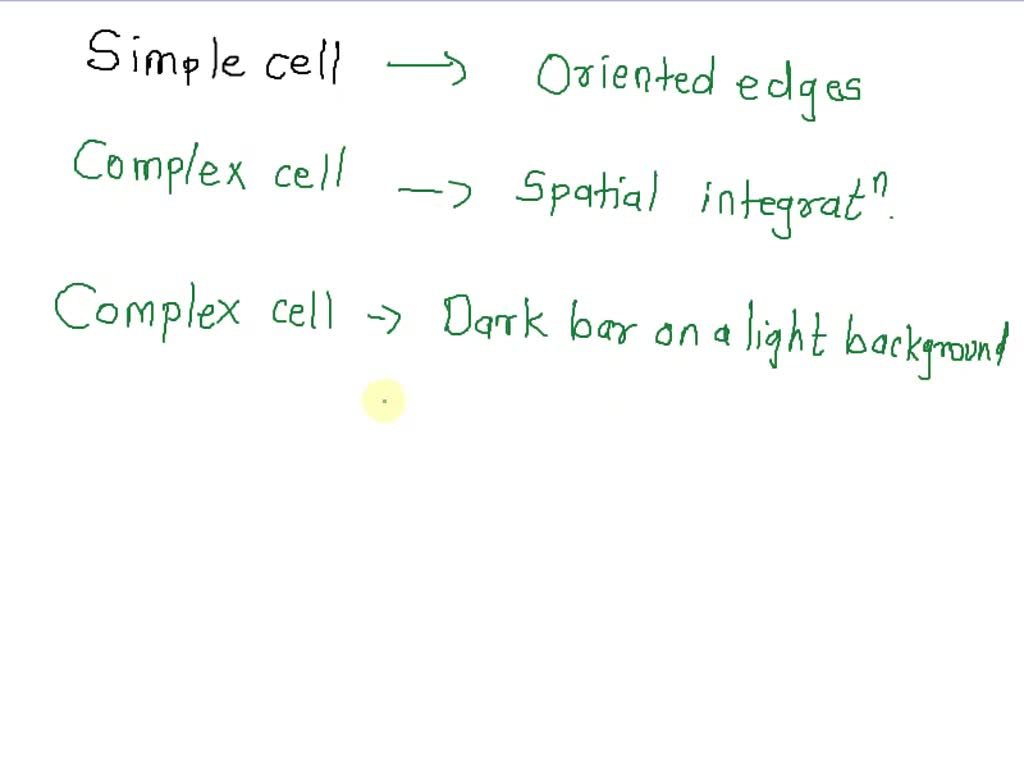 Simple cell → Oriented edges
Complex cell → Spatial integratⁿ.
Complex cell → Dark bar on a light background